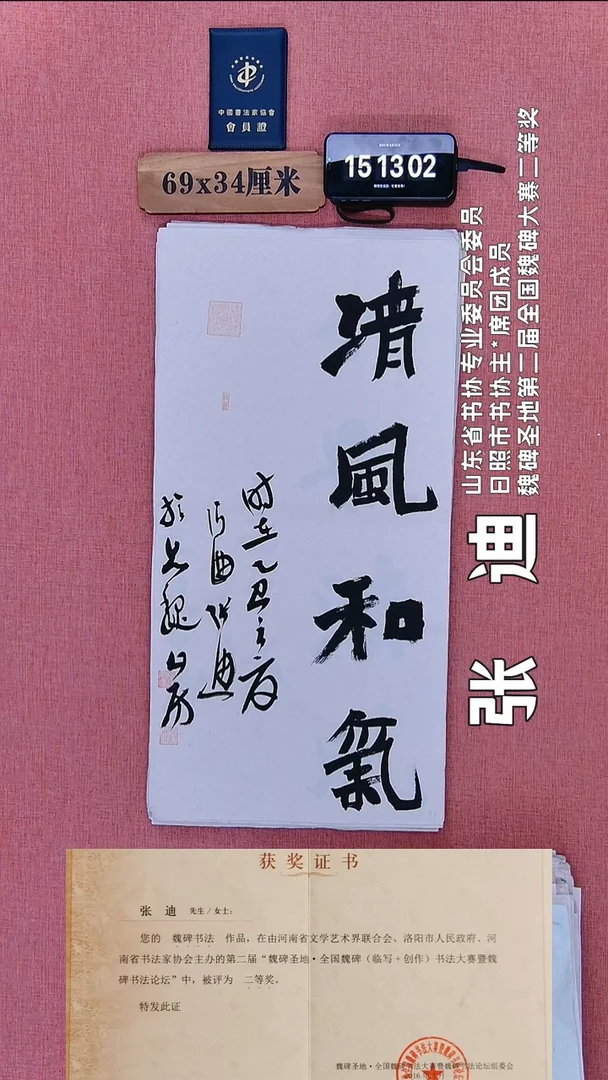 中國書法家協會
會員證
69x34厘米
15 13 02
山东省书协专业委员会委员
日照市书协主*席团成员
魏碑圣地第二届全国魏碑大赛二等奖
张 迪
清風和氣
时在乙巳之夏
张迪
获奖证书
张 迪 先生/女士：
您的 魏碑书法 作品，在由河南省文学艺术界联合会、洛阳市人民政府、河
南省书法家协会主办的第二届“魏碑圣地·全国魏碑（临写+创作）书法大赛暨魏
碑书法论坛”中，被评为 二等奖。
特发此证
魏碑圣地·全国魏碑书法大赛暨魏碑书法论坛组委会